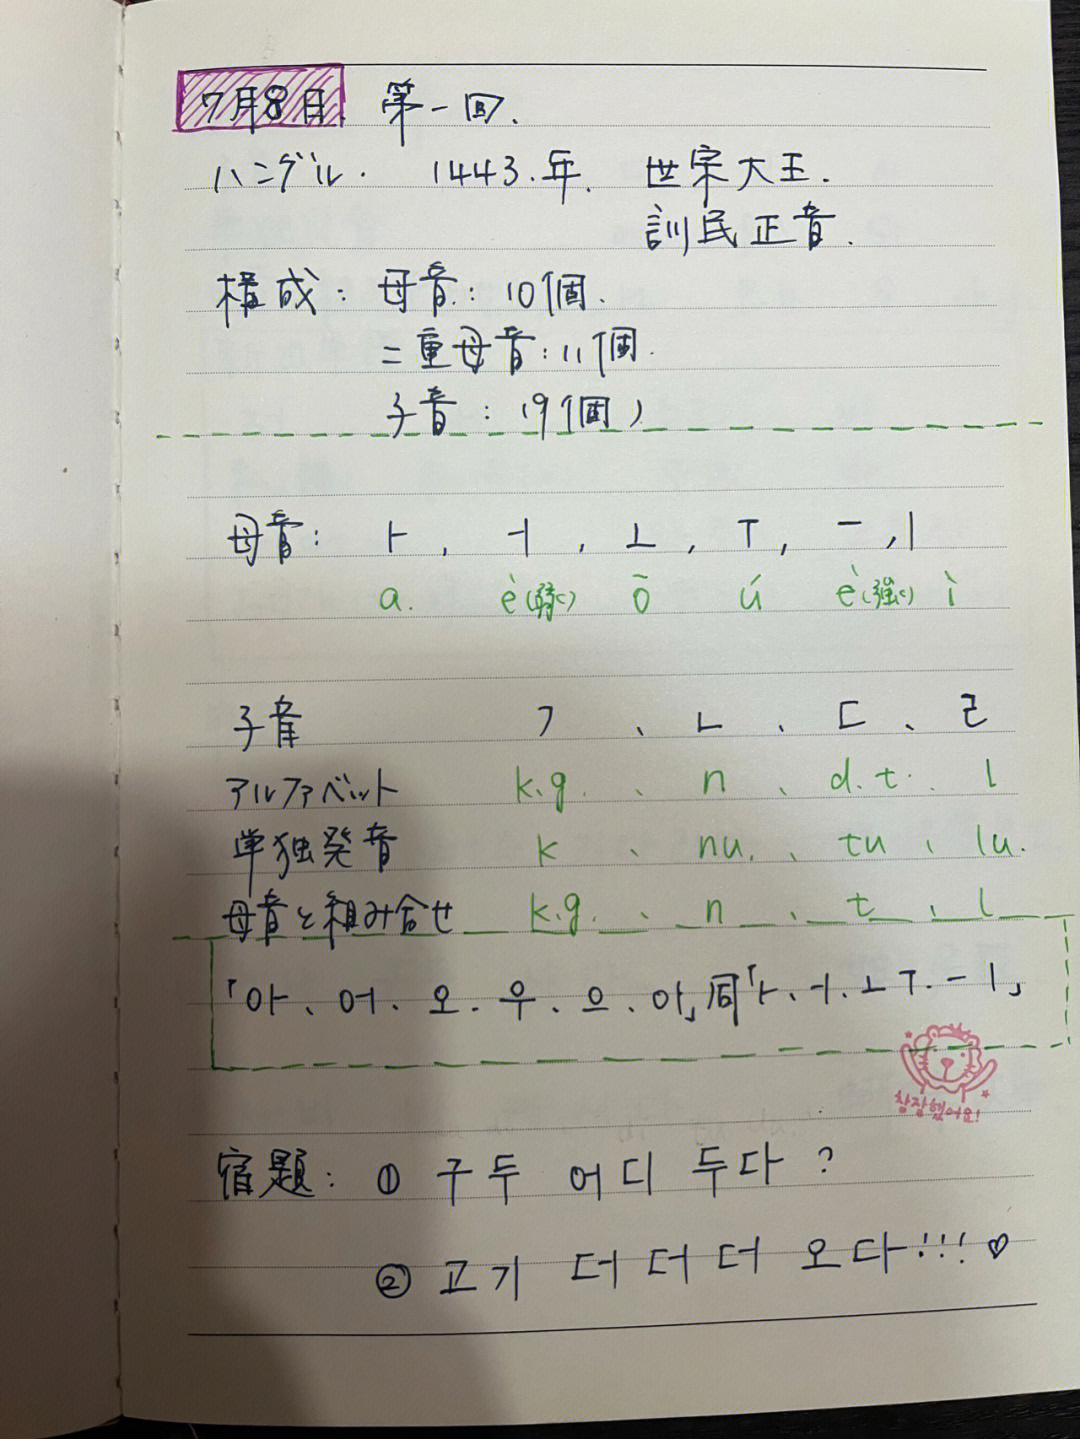 7月8日 第一回.
ハングル. 1443.年. 世宗大王.
訓民正音.
構成: 母音: 10個.
二重母音: 11個.
子音: 19個)
母音: ㅏ, ㅓ, ㅗ, ㅜ, ㅡ, ㅣ
a. è(弱く) ō ú è(強く) ì
子音 ㄱ、ㄴ、ㄷ、ㄹ
アルファベット k.g.、n、d.t. l
単独発音 k、nu.、tu、lu.
母音と組み合せ k.g.、n、t、l
「아、어.오.우.으.아」同「ㅏ.ㅓ.ㅗㅜ.ㅡㅣ」
참잘했어요!
宿題: ① 구두 어디 두다?
② 고기 더 더 더 오다!!! ♡